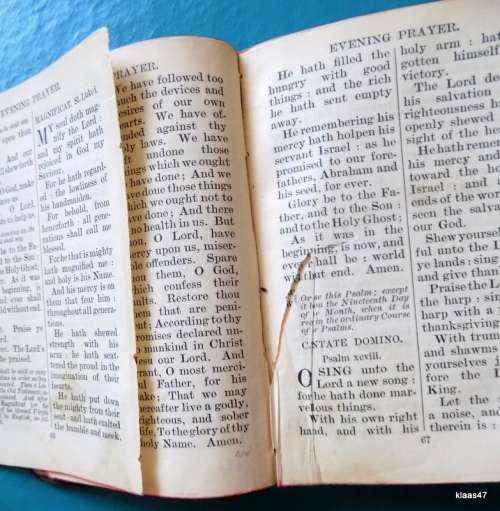 EVENING PRAYER.
MAGNIFICAT. St. Luke i.
MY soul doth mag-
nify the Lord :
and my spirit hath
rejoiced in God my
Saviour.
For he hath regard-
ed : the lowliness of
his handmaiden.
For behold, from
henceforth : all gene-
rations shall call me
blessed.
For he that is mighty
hath magnified me :
and holy is his Name.
And his mercy is on
them that fear him :
throughout all gene-
rations.
He hath shewed
strength with his
arm : he hath scat-
tered the proud in the
imagination of their
hearts.
He hath put down
the mighty from their
seat : and hath exalted
the humble and meek.
66
PRAYER.
We have followed too
much the devices and
desires of our own
hearts. We have of-
fended against thy
holy laws. We have
left undone those
things which we ought
to have done; And we
have done those things
which we ought not to
have done; And there
is no health in us. But
thou, O Lord, have
mercy upon us, miser-
able offenders. Spare
thou them, O God,
which confess their
faults. Restore thou
them that are peni-
tent; According to thy
promises declared un-
to mankind in Christ
Jesu our Lord. And
grant, O most merci-
ful Father, for his
sake; That we may
hereafter live a godly,
righteous, and sober
life, To the glory of thy
holy Name. Amen.
EVENING PRAYER.
He hath filled the
hungry with good
things : and the rich
he hath sent empty
away.
He remembering his
mercy hath holpen his
servant Israel : as he
promised to our fore-
fathers, Abraham and
his seed, for ever.
Glory be to the Fa-
ther, and to the Son :
and to the Holy Ghost;
As it was in the
beginning, is now, and
ever shall be : world
without end. Amen.
Or else this Psalm; except
it be on the Nineteenth Day
of the Month, when it is
read in the ordinary Course
of the Psalms.
CANTATE DOMINO.
Psalm xcviii.
O SING unto the
Lord a new song :
for he hath done mar-
vellous things.
With his own right
hand, and with his
holy arm : hath
gotten himself
victory.
The Lord de
his salvation
righteousness h
openly shewed
sight of the h
He hath remem
his mercy and
toward the ho
Israel : and
ends of the wo
seen the salvat
our God.
Shew yoursel
ful unto the L
ye lands : sing
and give than
Praise the L
the harp : sin
harp with a p
thanksgiving
With trum
and shawms
yourselves j
fore the L
King.
Let the
a noise, and
therein is :
67
klaas47